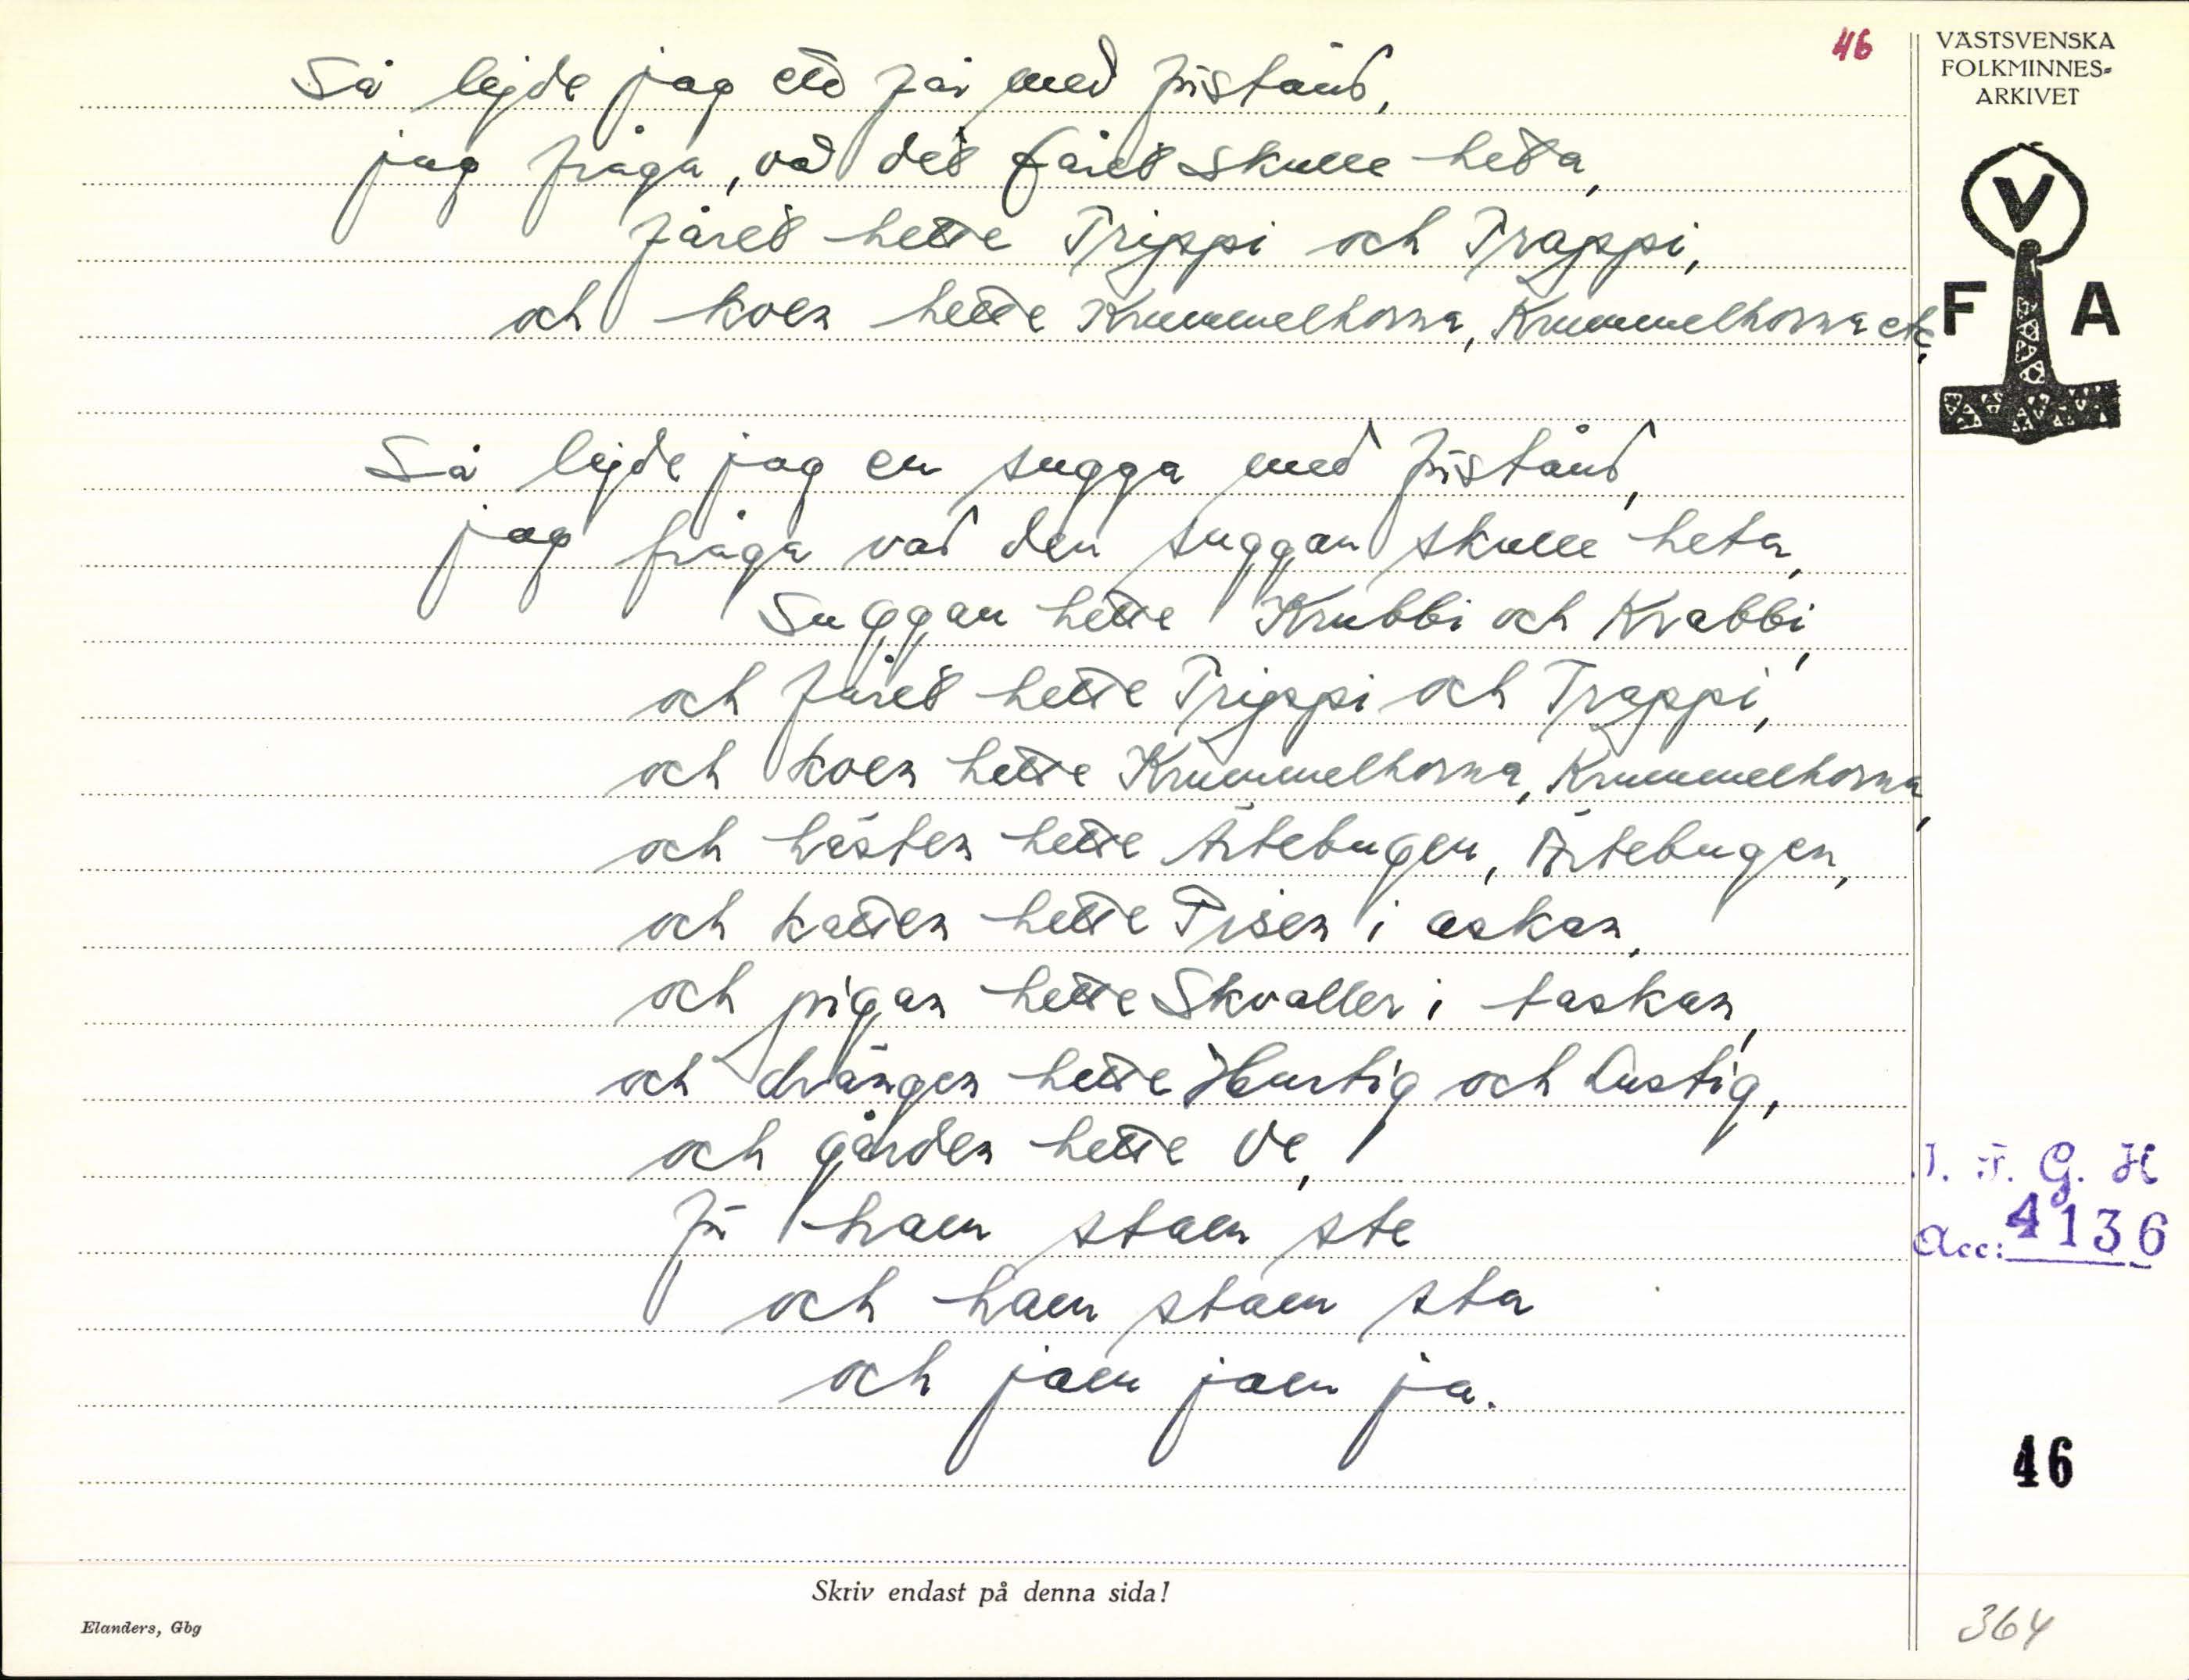 46
VÄSTSVENSKA
FOLKMINNES-
ARKIVET
V
F A
Så lejde jag ett får med fristånd,
jag fråga, vad det fåret skulle heta,
fåret hette Trippi och Trappi,
och koen hette Krummelhorna, Krummelhorna etc,
Så lejde jag en sugga med fristånd,
jag fråga vad den suggan skulle heta,
Suggan hette Krubbi och Krabbi,
och fåret hette Trippi och Trappi,
och koen hette Krummelhorna, Krummelhorna,
och hästen hette Ärtebugen, Ärtebugen,
och katten hette Frisen i askan,
och pigan hette Skvaller i taskan,
och drängen hette Hurtig och Lustig,
och gården hette Ve,
för haen staen ste
och haen staen sta
och jaen jaen ja.
I. F. G. H
Acc: 4136
46
Skriv endast på denna sida!
Elanders, Gbg
364